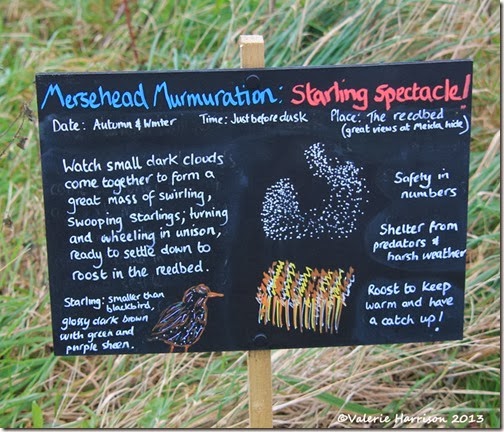 Mersehead Murmuration: Starling Spectacle!
Date: Autumn & Winter Time: Just before dusk Place: The reedbed
(great views at Meida hide)
Watch small dark clouds
come together to form a
great mass of swirling,
swooping starlings, turning
and wheeling in unison,
ready to settle down to
roost in the reedbed.
Starling: smaller than
blackbird,
glossy dark brown
with green and
purple sheen.
Safety in
numbers
Shelter from
predators &
harsh weather
Roost to keep
warm and have
a catch up!
©Valerie Harrison 2013